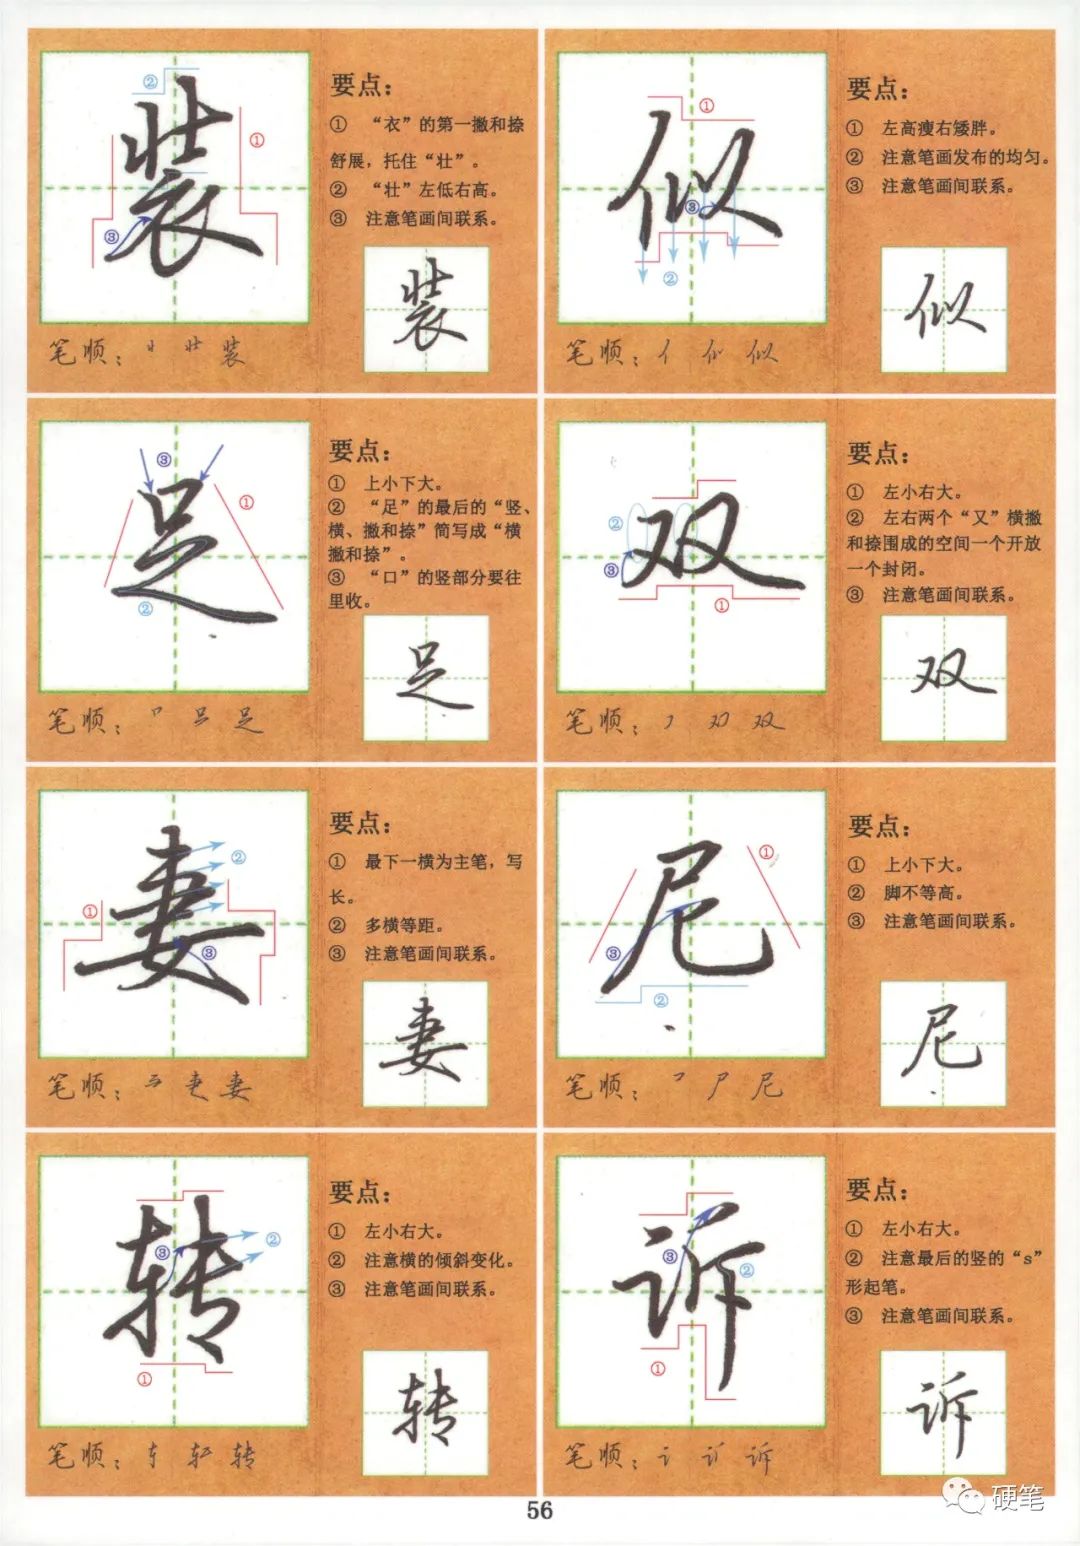 装
①②③
要点：
① “衣”的第一撇和捺
舒展，托住“壮”。
② “壮”左低右高。
③ 注意笔画间联系。
装
笔顺：丬 壮 装
似
①②③
要点：
① 左高瘦右矮胖。
② 注意笔画发布的均匀。
③ 注意笔画间联系。
似
笔顺：亻 似
足
①②③
要点：
① 上小下大。
② “足”的最后的“竖、
横、撇和捺”简写成“横
撇和捺”。
③ “口”的竖部分要往
里收。
足
笔顺：足
双
①①②③
要点：
① 左小右大。
② 左右两个“又”横撇
和捺围成的空间一个开放
一个封闭。
③ 注意笔画间联系。
双
笔顺：双
妻
①②③
要点：
① 最下一横为主笔，写
长。
② 多横等距。
③ 注意笔画间联系。
妻
笔顺：妻
尼
①②③
要点：
① 上小下大。
② 脚不等高。
③ 注意笔画间联系。
尼
笔顺：尸 尼
转
①②③
要点：
① 左小右大。
② 注意横的倾斜变化。
③ 注意笔画间联系。
转
笔顺：转
诉
①②③
要点：
① 左小右大。
② 注意最后的竖的“s”
形起笔。
③ 注意笔画间联系。
诉
笔顺：讠 诉
56
硬笔